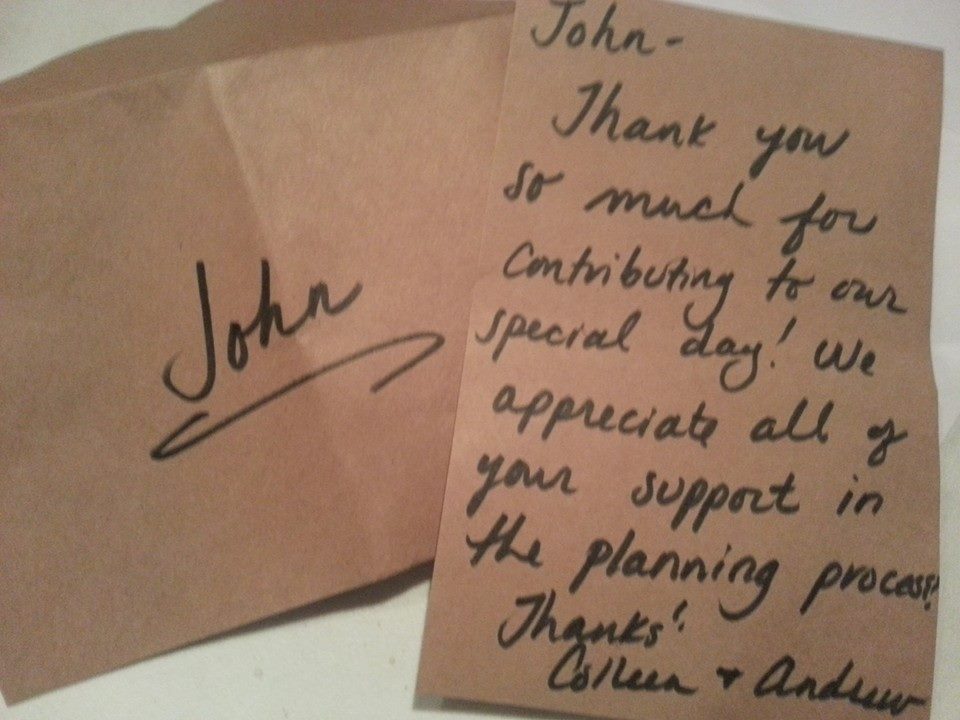 John
John-
Thank you
so much for
contributing to our
special day! We
appreciate all of
your support in
the planning process!
Thanks!
Colleen + Andrew